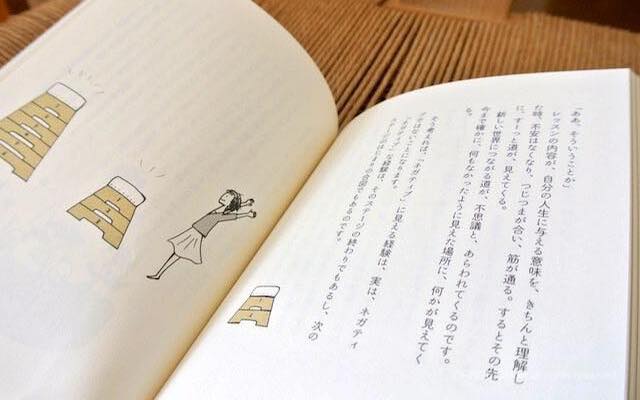 「ああ。そういうことか」
レッスンの内容が、自分の人生に与える意味を、きちんと理解し
た時、不安はなくなり、つじつまが合い、筋が通る。するとその先
に、すーっと道が、見えてくる。
新しい世界につながる道が、不思議と、あらわれてくるのです。
今まで確かに、何もなかったように見えた場所に、何かが見えてく
る。
そう考えれば、「ネガティブ」に見える経験は、実は、ネガティ
ブではないことになります。
「ネガティブ」な経験は、そのステージの終わりでもあるし、次の
ステージのはじまりの合図でもあるのです。